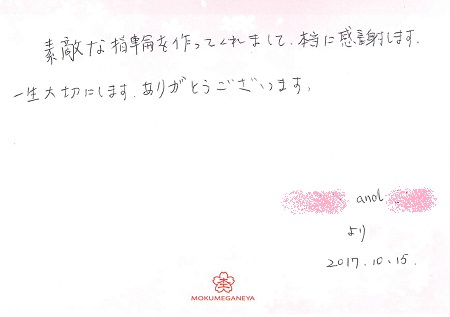 素敵な指輪を作ってくれまして、本当に感謝します。
一生大切にします。ありがとうございます。
and
より
2017.10.15.
MOKUMEGANEYA